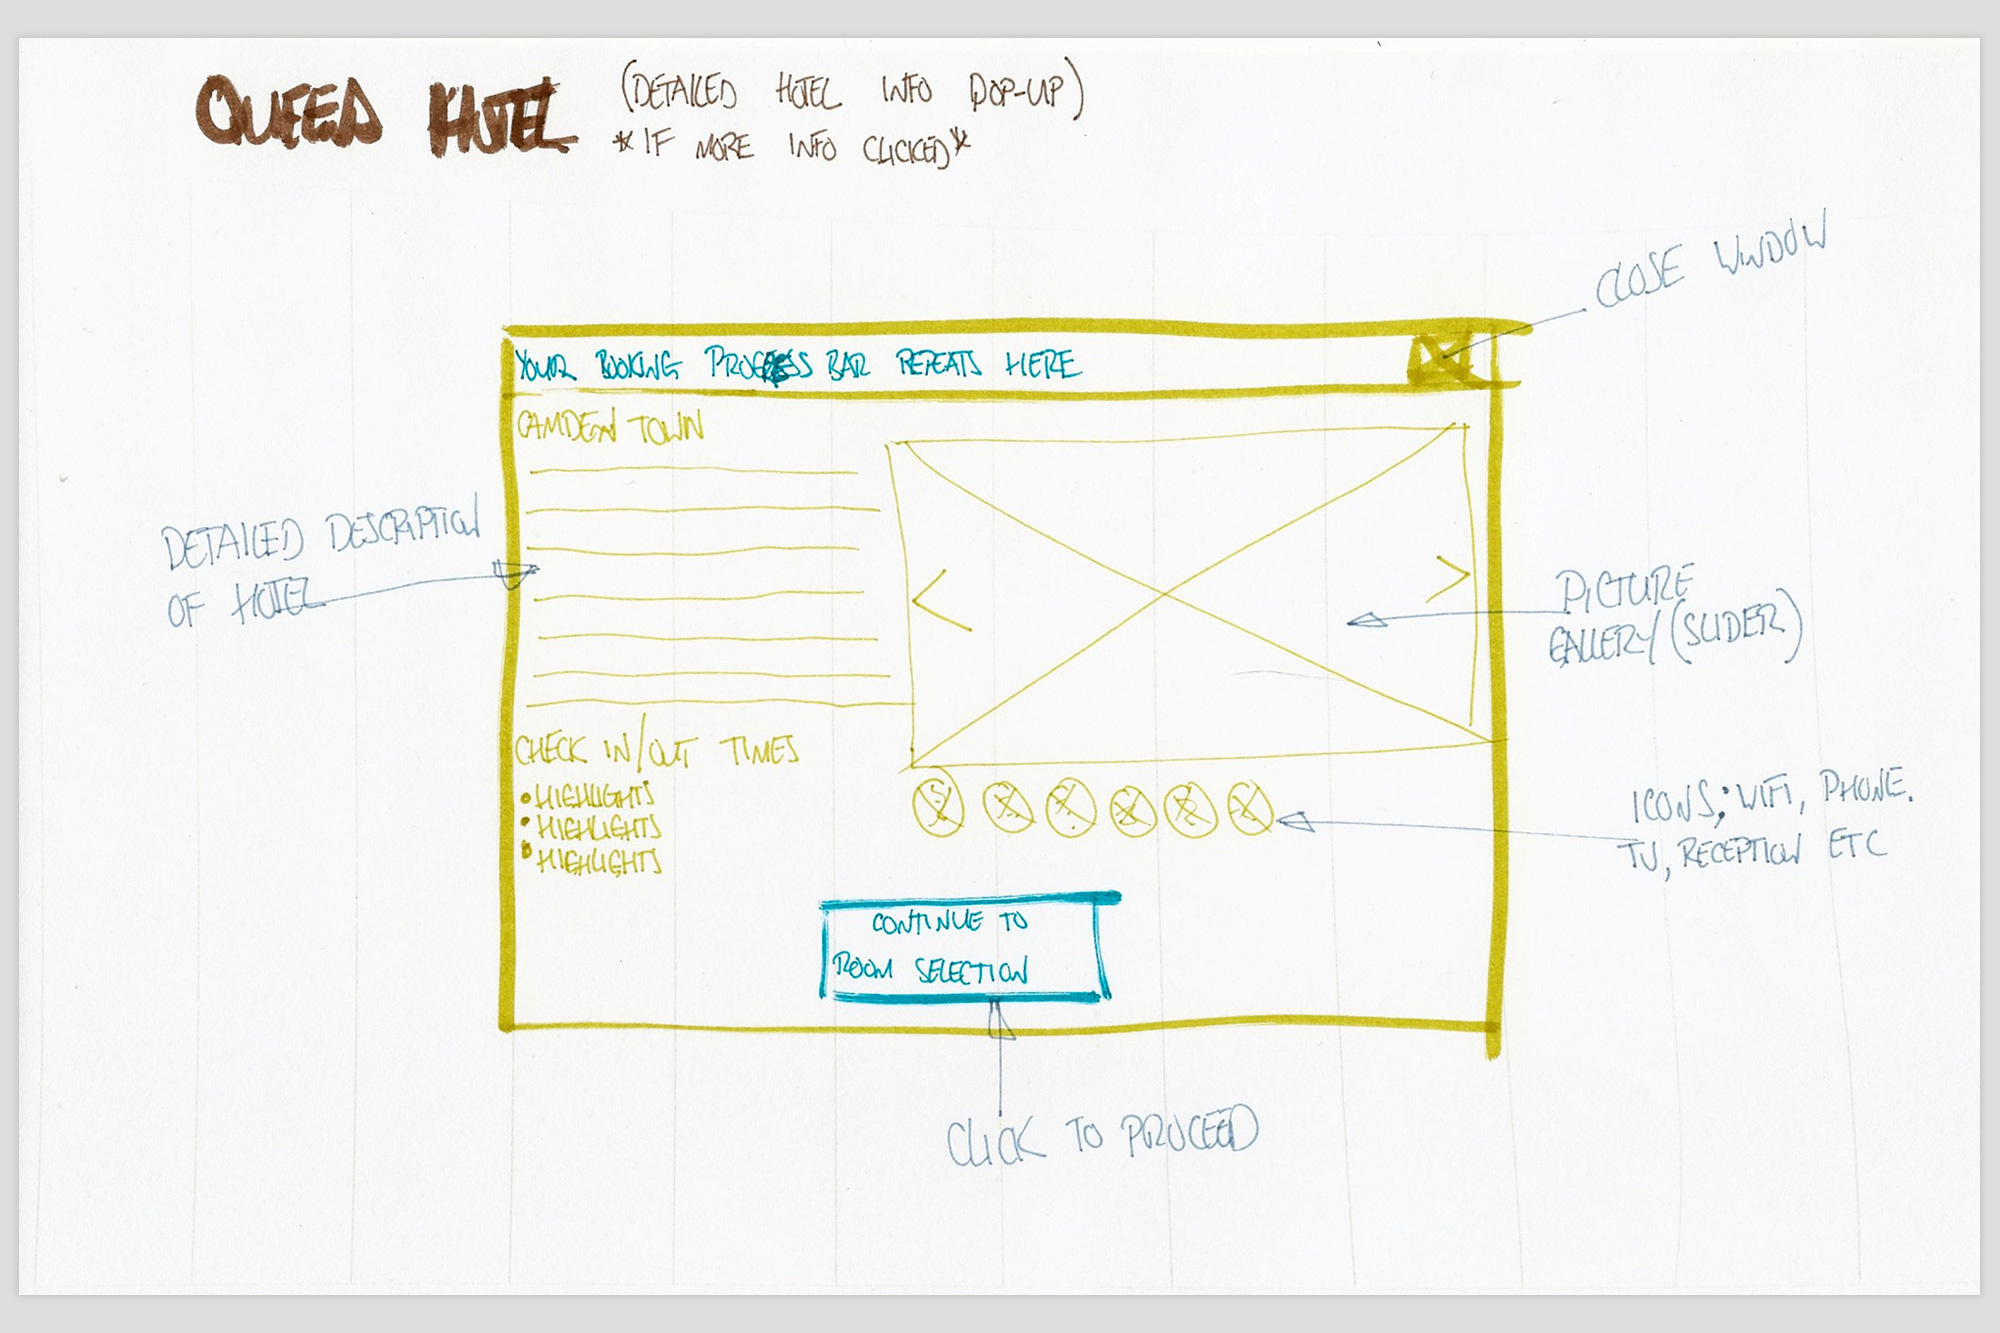 QUEED HOTEL
(DETAILED HOTEL INFO POP-UP)
*IF MORE INFO CLICKED*
CLOSE WINDOW
YOUR BOOKING PROCESS BAR REPEATS HERE
CAMDEN TOWN
DETAILED DESCRIPTION
OF HOTEL
PICTURE
GALLERY (SLIDER)
CHECK IN/OUT TIMES
• HIGHLIGHTS
• HIGHLIGHTS
• HIGHLIGHTS
ICONS; WIFI, PHONE.
TV, RECEPTION ETC
CONTINUE TO
ROOM SELECTION
CLICK TO PROCEED